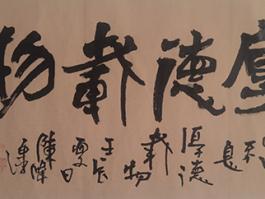 厚德載物
不息
厚德
載物
壬辰
夏日